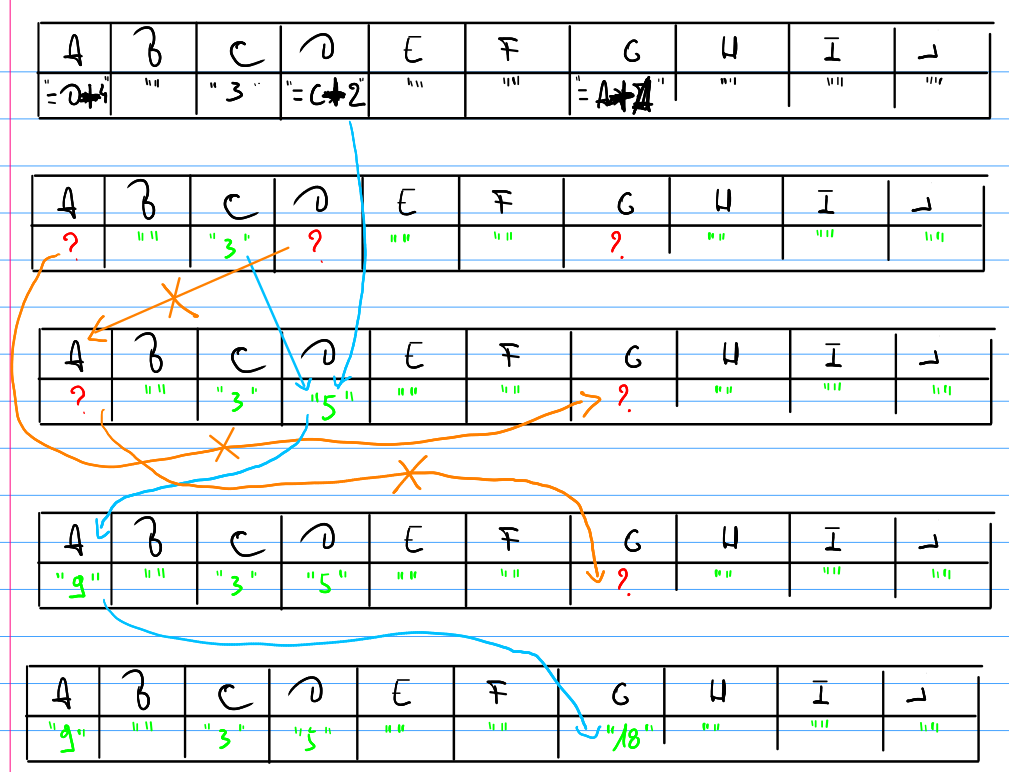 A B C D E F G H I J
"=D+4" "" "3" "=C+2" "" "" "=A+A" "" "" ""
A B C D E F G H I J
? "" "3" ? "" "" ? "" "" ""
A B C D E F G H I J
? "" "3" "5" "" "" ? "" "" ""
A B C D E F G H I J
"9" "" "3" "5" "" "" ? "" "" ""
A B C D E F G H I J
"9" "" "3" "5" "" "" "18" "" "" ""